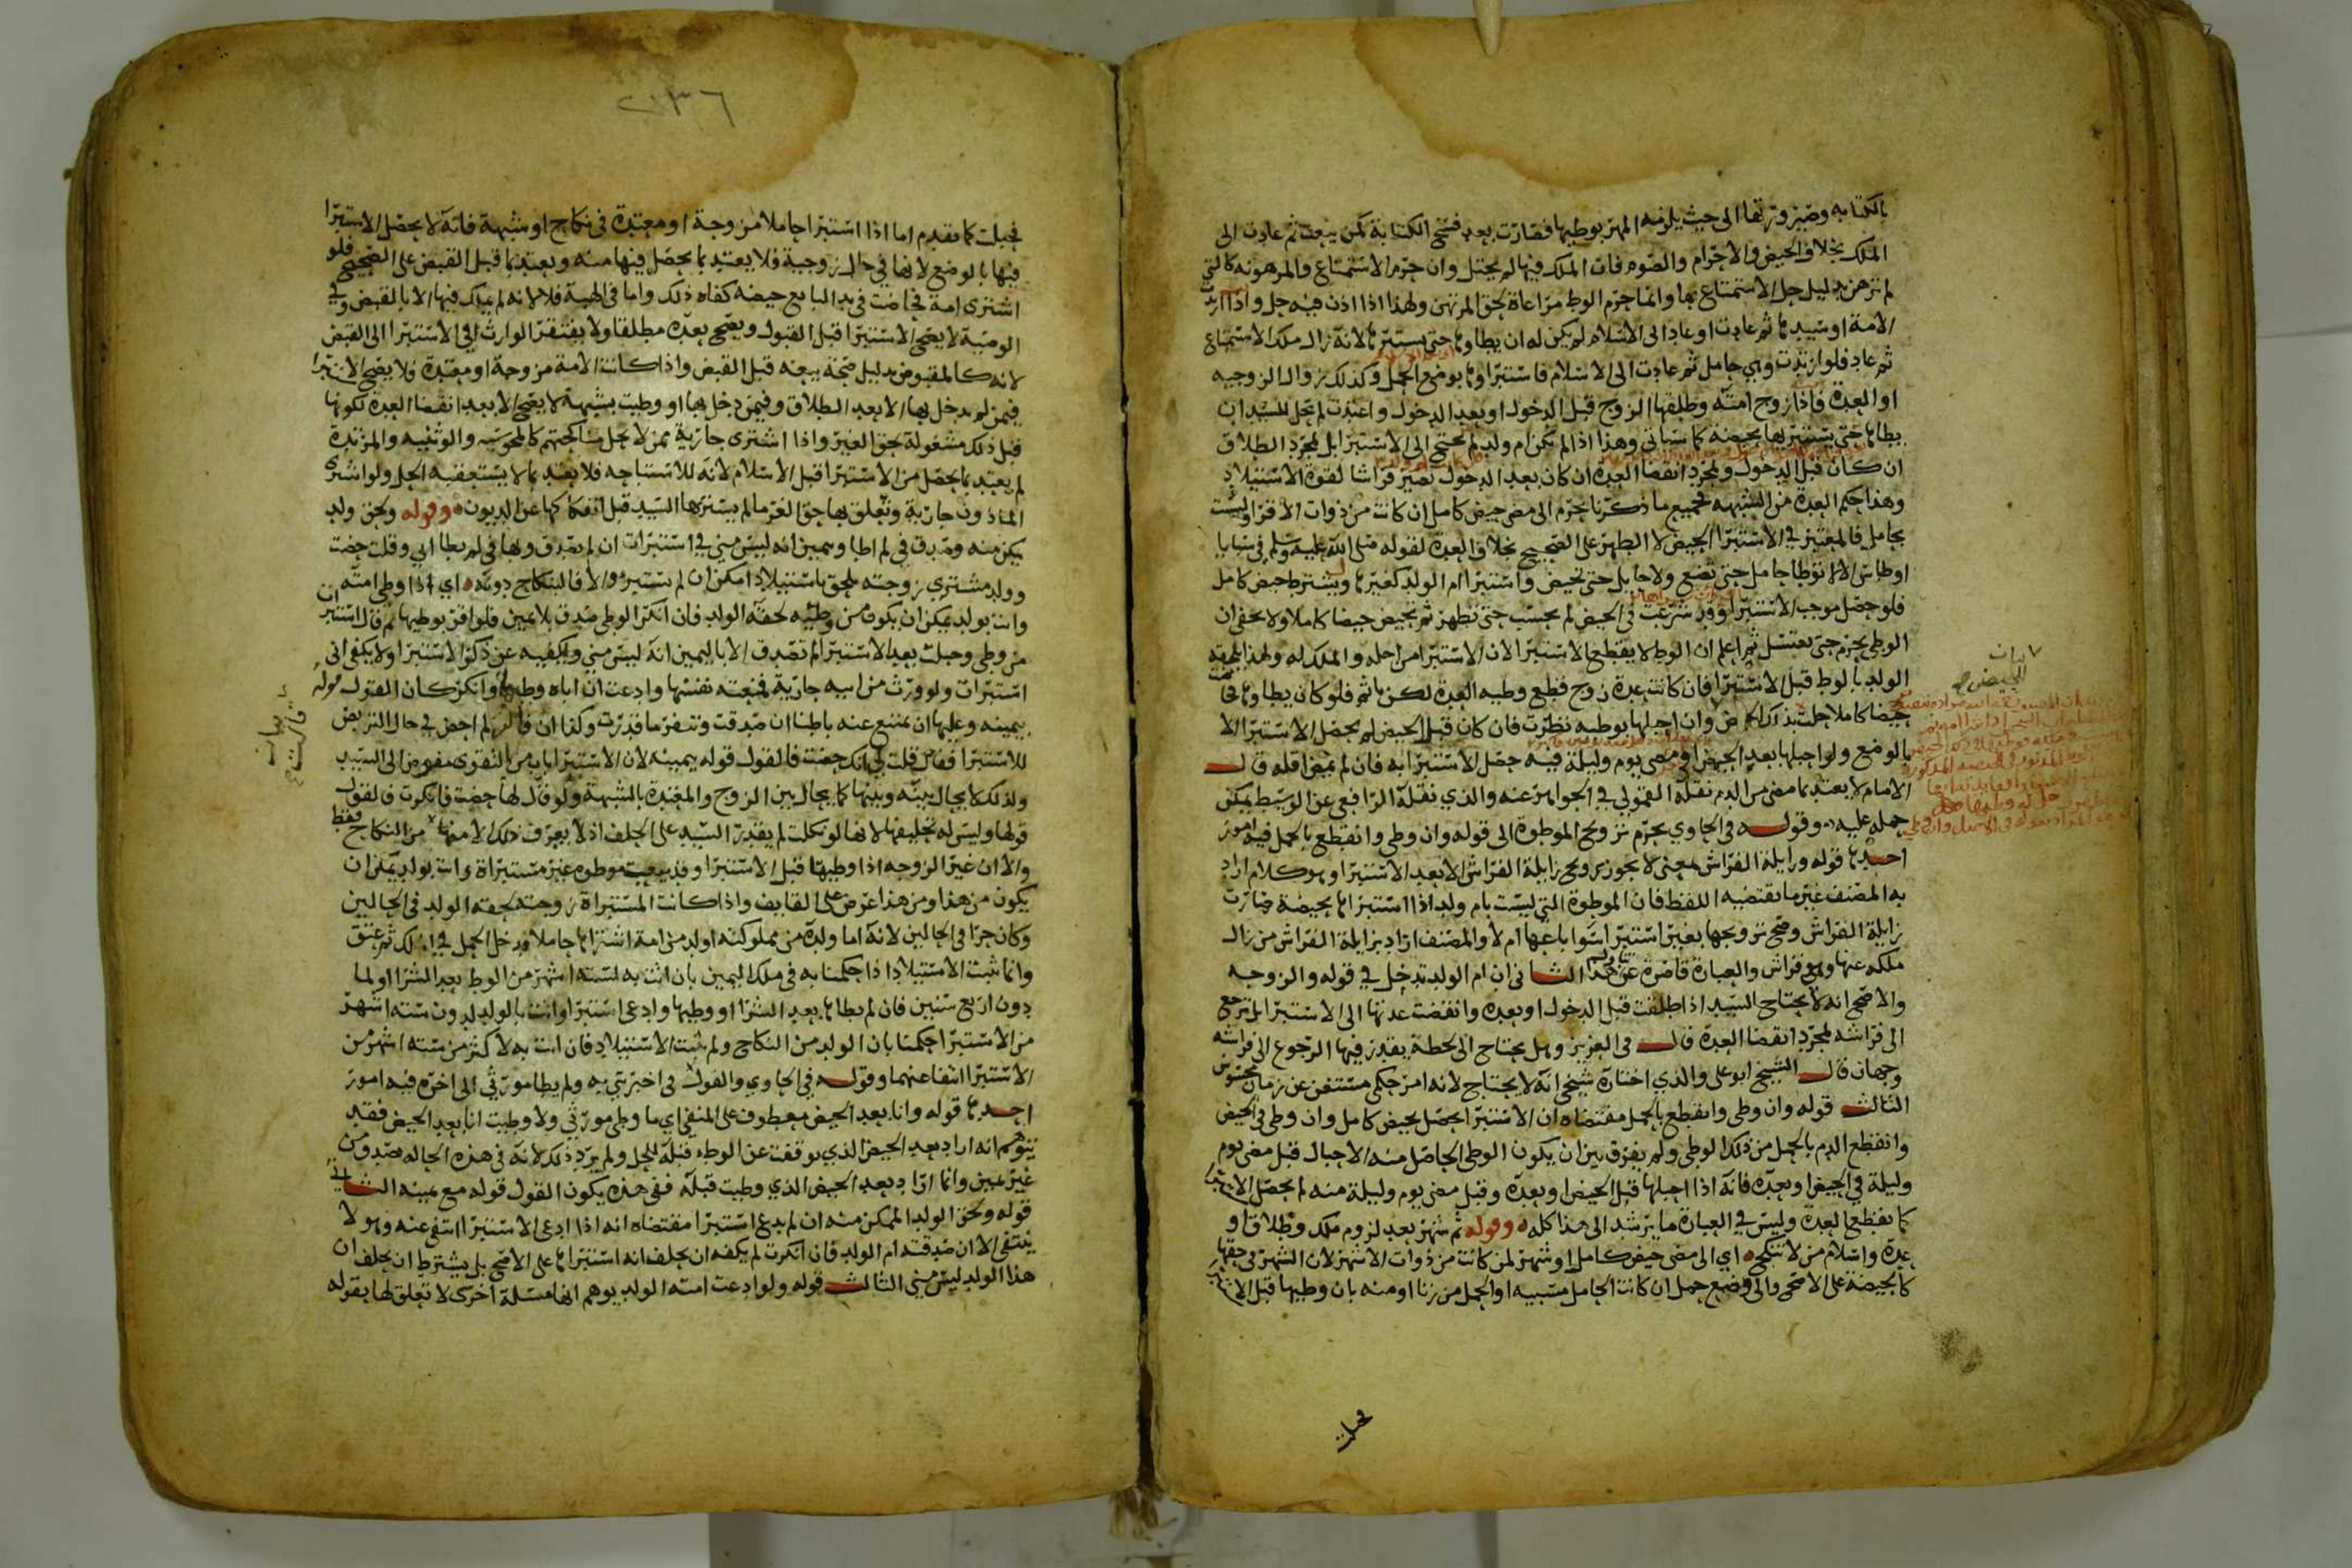 بالكتابه وصيرورتها الى حيث يلزمه المهر بوطيها فصارت بعد فسخ الكتابة كمن بيعت ثم عادت الى
الملك بخلاف الحيض والاحرام والصوم فان الملك فيها لم يختل وان حرم الاستمتاع والمرهونه كالتي
لم ترهن بدليل حل الاستمتاع بها وانما حرم الوطء مراعاة لحق المرتهن ولهذا اذا اذن فيه حل واذا ارتدت
الامة او سيدها ثم عادت او عاد الى الاسلام لم يكن له ان يطاها حتى يستبرئها لانه زال ملك الاستمتاع
ثم عاد فلو ارتدت وهي حامل ثم عادت الى الاسلام فاستبراوها بوضع الحمل وكذلك زوال الزوجيه
او العدة فاذا زوج امته وطلقها الزوج قبل الدخول او بعد الدخول واعتدت لم تحل للسيد ان
يطاها حتى يستبريها بحيضه كما سياتي وهذا اذا لم تكن ام ولد لم يحتج الى الاستبرا بل بمجرد الطلاق
ان كان قبل الدخول وبمجرد انقضا العدة ان كان بعد الدخول تصير فراشا لقوة الاستيلاد
وهذا حكم العدة من الشبهه فجميع ما ذكرنا يحرم الى مضي حيض كامل ان كانت من ذوات الاقرا وليست
بحامل فالمعتبر في الاستبرا الحيض لا الطهر على الصحيح بخلاف العدة لقوله صلى الله عليه وسلم في سبايا
اوطاس الا لا توطا حامل حتى تضع ولا حايل حتى تحيض واستبرا ام الولد كغيرها ويشترط حيض كامل
فلو حصل موجب الاستبرا وقد شرعت في الحيض لم يحتسب حتى تطهر ثم تحيض حيضا كاملا ولا يخفى ان
الوطي يحرم حتى تغتسل ثم اعلم ان الوطء لا يقطع الاستبرا لان الاستبرا من اجله والملك له ولهذا يلحقه
الولد بالوطء قبل الاستبرا فان كانت عدة زوج قطع وطيه العدة لكن ياثم فلو كان يطاوها فحاضت
حيضا كاملا حلت بذلك الحيض وان احبلها بوطيه نظرت فان كان قبل الحيض لم يحصل الاستبرا الا
بالوضع ولو احبلها بعد الحيض او مضي يوم وليلة فيه حصل الاستبرا به فان لم يمض اقله قال
الامام لا يعتد بما مضى من الدم نقله القمولي في الجواهر عنه والذي نقله الرافعي عن الوسيط يمكن
حمله عليه وقوله في الحاوي يحرم تزويج الموطوة الى قوله وان وطي وانقطع بالحمل فيه امور
احدها قوله وزايلة الفراش بمعنى لا يجوز تزويج زايلة الفراش الا بعد الاستبرا وهو كلام اراد
به المصنف غير ما يقتضيه اللفظ فان الموطوة التي ليست بام ولد اذا استبراها بحيضة صارت
زايلة الفراش وصح تزويجها بغير استبرا سوا باعها ام لا والمصنف اراد بزايلة الفراش من زال
ملكه عنها وهي فراش والعبارة قاصرة عن هذا الثاني ان ام الولد تدخل في قوله والزوجه
والاصح انه لا يحتاج السيد اذا طلقت قبل الدخول او بعده وانقضت عدتها الى الاستبرا بل ترجع
الى فراشه بمجرد انقضا العدة قال في العزيز وهل يحتاج الى لحظة يقدر فيها الرجوع الى فراشه
وجهان قال الشيخ ابو علي والذي اختاره شيخي انه لا يحتاج لانه امر حكمي مستغن عن زمان محسوس
الثالث قوله وان وطي وانقطع بالحمل مقتضاه ان الاستبرا يحصل بحيض كامل وان وطي في الحيض
وانقطع الدم بالحمل من ذلك الوطي ولم يفرق بين ان يكون الوطي الحاصل منه الاحبال قبل مضي يوم
وليلة في الحيض او بعده فانه اذا احبلها قبل الحيض او بعده وقبل مضي يوم وليلة منه لم يحصل الاستبرا
كما يقطع العدة وليس في العبارة ما يرشد الى هذا كله وقوله ثم شهر بعد لزوم ملك وطلاق او
عدة واسلام من لا تنكح اي الى مضي حيض كامل او شهر لمن كانت من ذوات الاشهر لان الشهر في حقها
كالحيضة على الاصح والى وضع حمل ان كانت الحامل مسبيه او الحمل من زنا او منه بان وطيها قبل الاستبرا
فحبلت
بيان
الحيض
٢١٣٦
فحبلت كما تقدم اما اذا استبرا حاملا مزوجة او معتدة في نكاح او شبهة فانه لا يحصل الاستبرا
فيها بالوضع لانها في حال زوجية فلا يعتد بما يحصل فيها منه ويعتد بما قبل القبض على الصحيح فلو
اشترى امة فحاضت في يد البايع حيضه كفاه ذلك واما في الهبة فلا لانه لم يملك فيها الا بالقبض وفي
الوصية لا يصح الاستبرا قبل القبول ويصح بعده مطلقا ولا يفتقر الوارث في الاستبرا الى القبض
لانه كالمقبوض بدليل صحة بيعه قبل القبض واذا كانت الامة مزوجة او معتدة فلا يصح الاستبرا
فيمن لم يدخل بها الا بعد الطلاق وفيمن دخل بها او وطيت بشبهة لا يصح الا بعد انقضا العدة لكونها
قبل ذلك مشغولة بحق الغير واذا اشترى جارية ممن لا تحل مناكحتهم كالمجوسيه والوثنيه والمرتدة
لم يعتد بما يحصل من الاستبرا قبل الاسلام لانه للاستباحه فلا يعتد بما لا يستعقبه الحل ولو اشترى
الماذون جارية وتعلق بها حق الغرما لم يستبرها السيد قبل انفكاكها عن الديون وقوله ولحق ولد
يمكن منه وصدق في لم اطا ويمين انه ليس مني في استبرات ان لم تصدق ولها في لم يطا ابي وقلت حضت
وولد مشتري زوجته لحق باستيلاد امكن ان لم يستبرئ والا فالنكاح دونه اي اذا وطي امته
واتت بولد يمكن ان يكون من وطئه لحقه الولد فان انكر الوطي صدق بلا يمين فلو اقر بوطيها ثم قال استبرات
من وطي وحبلت بعد الاستبرا لم تصدق الا باليمين انه ليس مني ويكفيه عن ذكر الاستبرا ولا يكفي اني
استبرات ولو ورث من ابيه جارية فمنعته نفسها وادعت ان اباه وطيها وانكر كان القول قوله
بيمينه وعليها ان تمتنع عنه باطنا ان صدقت وتنفر ما قدرت وكذا ان قالت لم احض في حال التربص
للاستبرا فقال قلت لي انك حضت فالقول قوله بيمينه لان الاستبرا باب من التقوى مفوض الى السيد
ولذلك لا يحال بينه وبينها كما يحال بين الزوج والمعتدة بالشبهة ولو قال لها حضت فانكرت فالقول
قولها وليس له تحليفها لانها لو نكلت لم يقدر السيد على الحلف اذ لا يعرف ذلك الا منها من النكاح فقط
والا ان غير الزوجه اذا وطيها قبل الاستبرا وقد بيعت موطوه غير مستبراة واتت بولد يمكن ان
يكون من هذا ومن هذا عرض على القايف واذا كانت المستبراة زوجته لحقه الولد في الحالين
وكان حرا في الحالين لانه اما ولده من مملوكته او ولد من امة اشتراها حاملا فدخل الحمل في الملك ثم عتق
وانما ثبت الاستيلاد اذا حكمنا به في ملك اليمين بان اتت به لستة اشهر من الوطء بعد الشرا او لما
دون اربع سنين فان لم يطاها بعد الشرا او وطيها وادعى استبرا واتت بالولد لدون ستة اشهر
من الاستبرا حكمنا بان الولد من النكاح ولم يثبت الاستيلاد فان اتت به لاكثر من ستة اشهر من
الاستبرا انتفا عنهما وقوله في الحاوي والقول في اخبرتني به ولم يطا مورثي الى اخره فيه امور
احدها قوله وانا بعد الحيض معطوف على المنفي اي ما وطي مورثي ولا وطيت انا بعد الحيض فقد
يتوهم انه اراد بعد الحيض الذي توقفت عن الوطء قبله للحل ولم يرد ذلك لانه في هذه الحاله مصدق من
غير يمين وانما اراد بعد الحيض الذي وطيت قبله ففي هذه يكون القول قوله مع يمينه الثاني
قوله ولحق الولد الممكن منه ان لم يدع استبرا مقتضاه انه اذا ادعى الاستبرا انتفى عنه وهو لا
ينتفي الا ان صدقته ام الولد فان انكرت لم يكفه ان يحلف انه استبراها على الاصح بل يشترط ان يحلف ان
هذا الولد ليس مني الثالث قوله ولو ادعت امته الولد يوهم انها مسلة اخرى لا تعلق لها بقوله